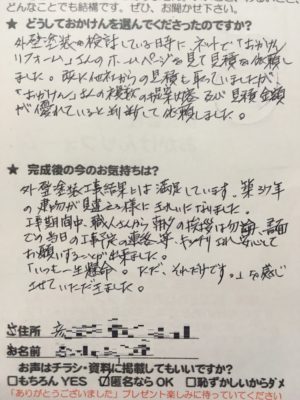 どんなことでも結構です。ぜひ、お聞かせ下さい。
★ どうしておかけんを選んでくださったのですか?
外壁塗装を検討している時に、ネットで「おかけん
リフォーム」さんのホームページを見て見積を依頼し
ました。既に他社からの見積も取っていましたが、
「おかけん」さんの複数の提案内容 及び 見積金額
が優れていると判断して依頼しました。
★ 完成後の今のお気持ちは?
外壁塗装工事結果には満足しています。築37年
の建物が見違える様にきれいになりました。
工事期間中、職人さんから朝夕の挨拶は勿論、書面
での当日の工事予定の連絡等、キッチリなされ安心して
お願いすることが出来ました。
「いつも一生懸命。ただ、それだけです。」を感じ
させていただきました。
ご住所
お名前
お声はチラシ・資料に掲載してもいいですか?
□もちろん YES ☑匿名なら OK □恥ずかしいからダメ
「ありがとうございました」プレゼント楽しみに待っていてください